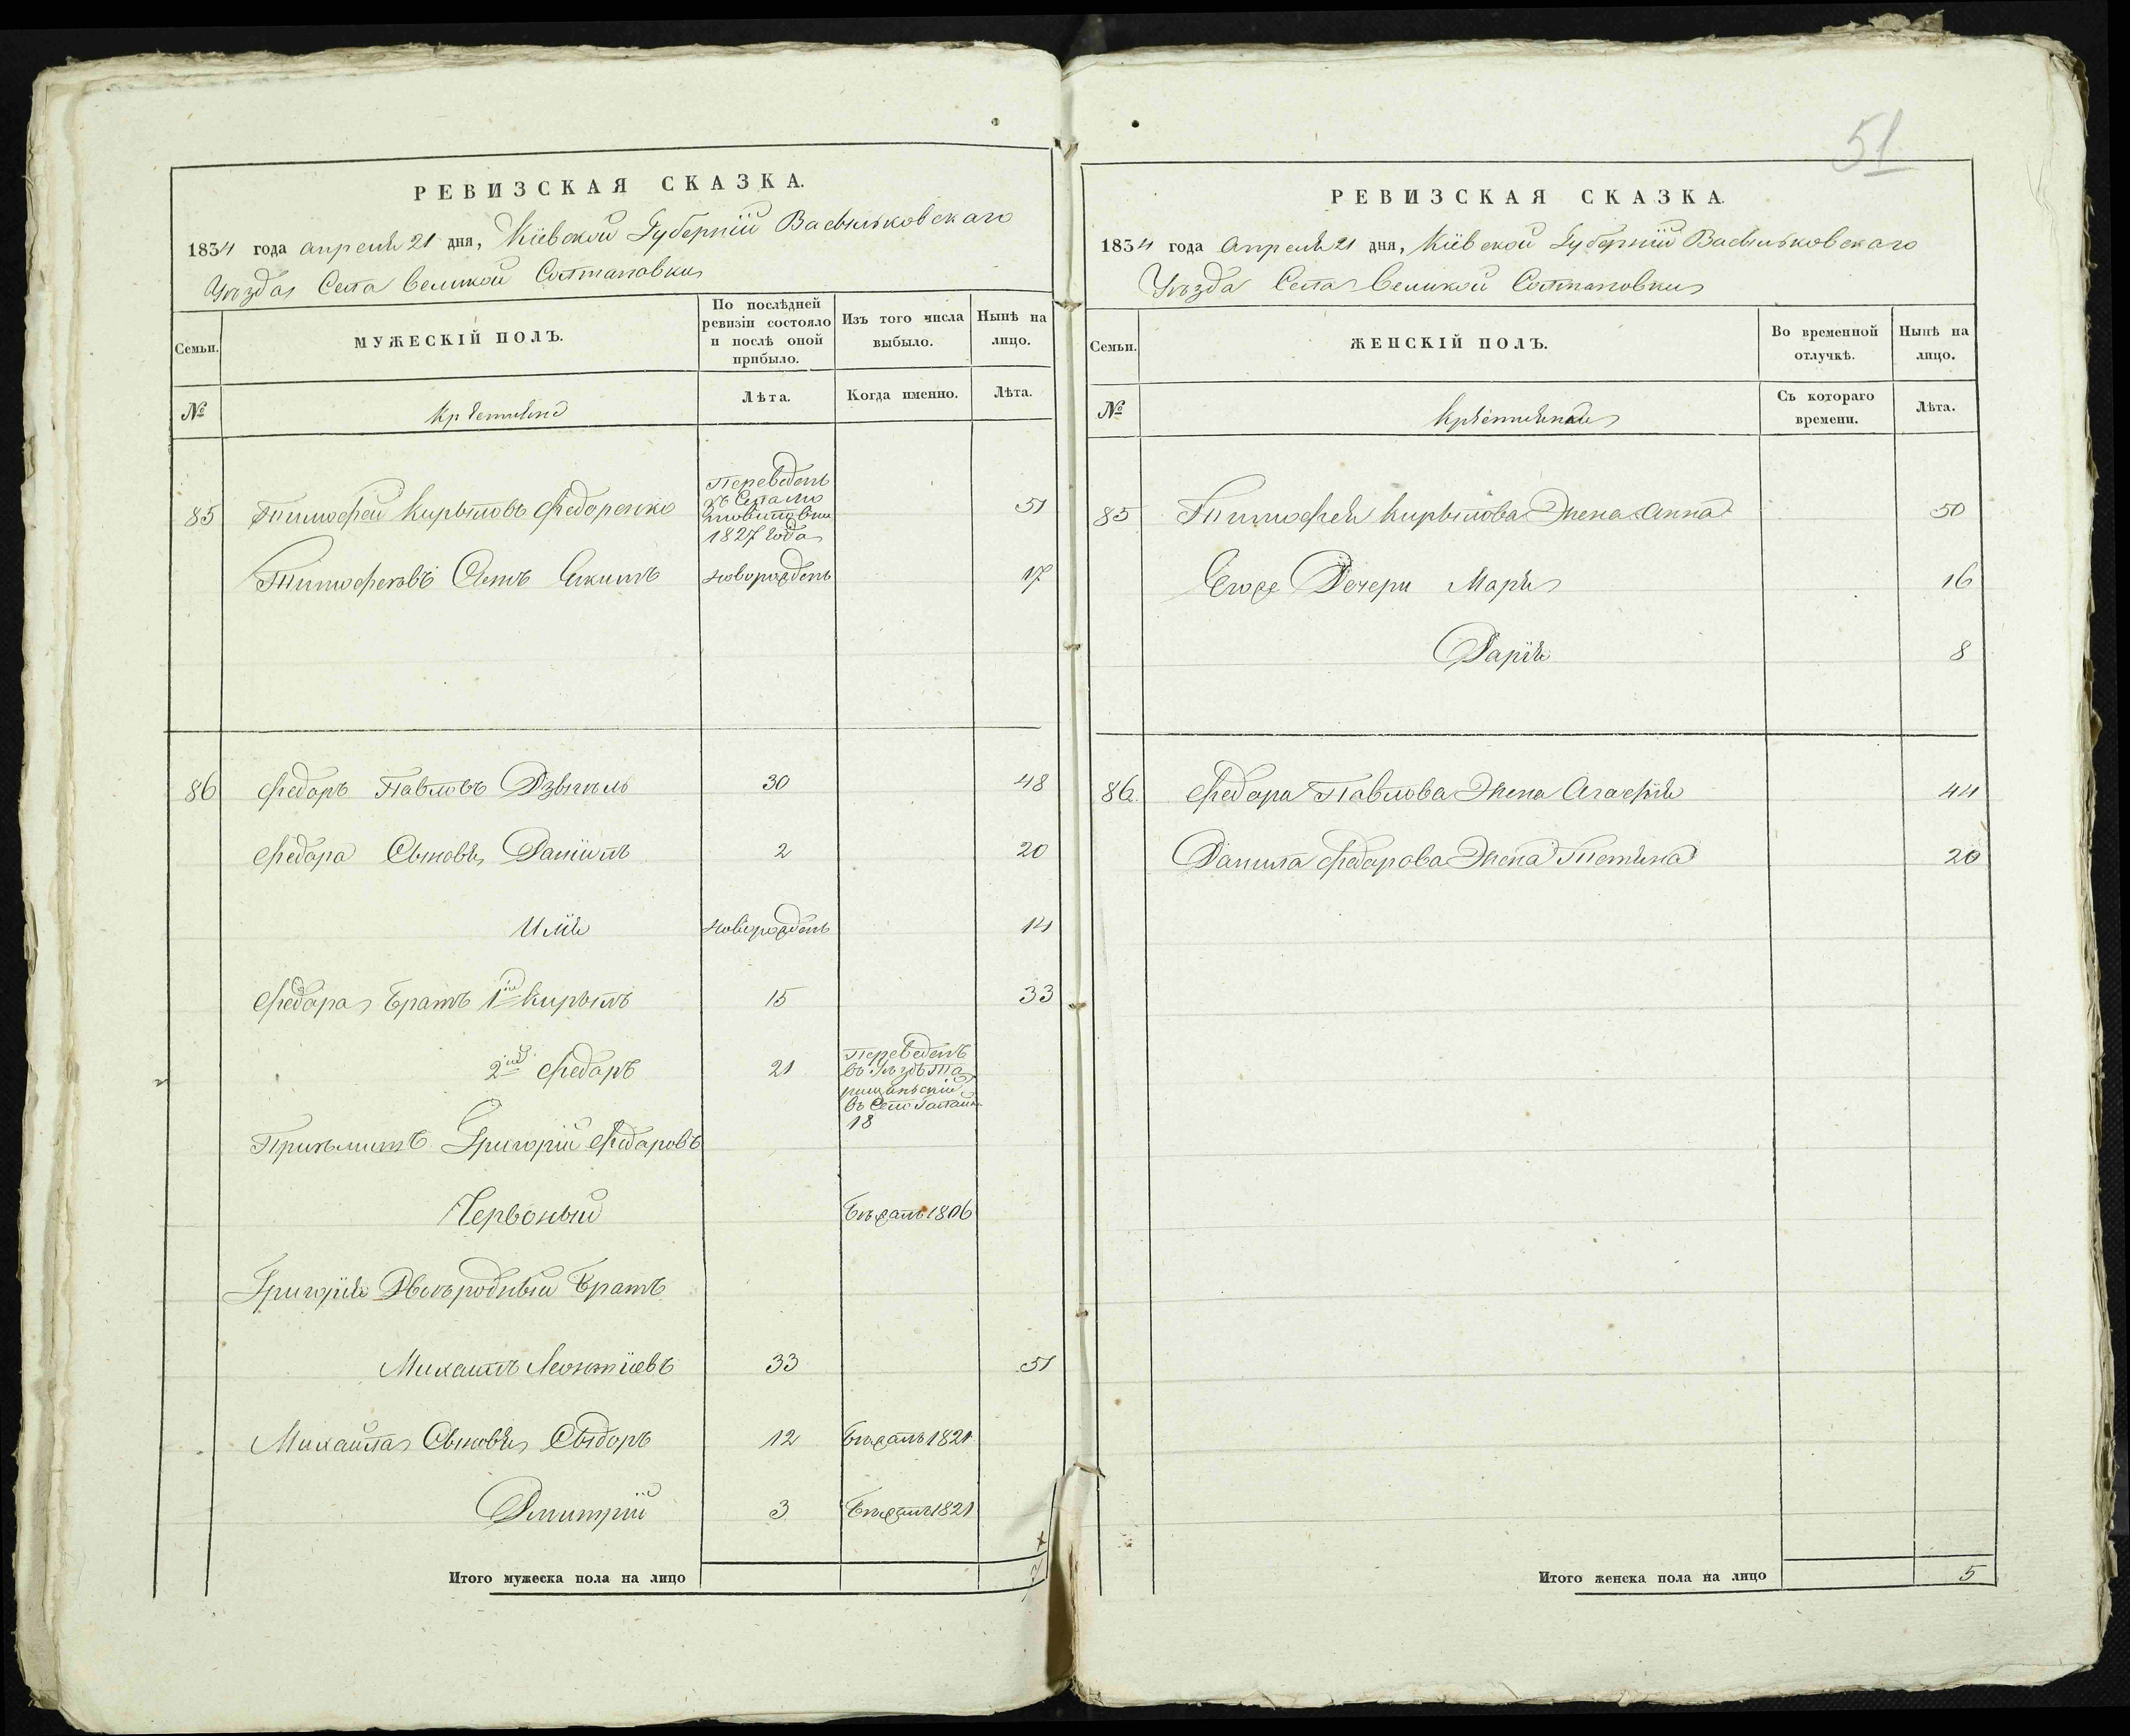 РЕВИЗСКАЯ СКАЗКА.
1834 года апреля 21 дня, Кіевской Губерніи Васильковскаго
Уѣзда Села Великой Солтановки
Семьи.
МУЖЕСКІЙ ПОЛЪ.
По послѣдней ревизіи состояло и послѣ оной прибыло.
Изъ того числа выбыло.
Нынѣ на лицо.
№
Крестьяне
Лѣта.
Когда именно.
Лѣта.
85 Тимофей Кирыловъ Федоренко Переведенъ 51
1827 года
Тимофеевъ Сынъ Якимъ новорожденъ 17
86 Федоръ Павловъ 30 48
Федора Сыновья Данилъ 2 20
Илія новорожденъ 14
Федора Братъ 1й Кирылъ 15 33
2й Федоръ 21 Переведенъ
въ Уѣздъ Та
въ Село
18
Григорій Федоровъ
Червоный Бѣжалъ 1806
Григорія Двоюродный Братъ
Михаилъ Леонтіевъ 33 51
Михаила Сыновья Сыдоръ 12 Бѣжалъ 1821
Дмитрій 3 Бѣжалъ 1821
Итого мужеска пола на лицо 7
51
РЕВИЗСКАЯ СКАЗКА.
1834 года Апреля 21 дня, Кіевской Губерніи Васильковскаго
Уѣзда Села Великой Солтановки
Семьи.
ЖЕНСКІЙ ПОЛЪ.
Во временной отлучкѣ.
Нынѣ на лицо.
№
Съ котораго времени.
Лѣта.
85 Тимофея Кирылова Жена Анна 50
Егоже Дочери Марья 16
Дарія 8
86 Федора Павлова Жена Агафія 44
Данила Федорова Жена Тетяна 20
Итого женска пола на лицо 5